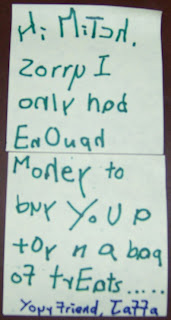 Hi Mitsd,
zorry I
only hod
EnOugd
Moder to
buy YoU P
toy n a bog
of trEots.....
Your Friend, Taffa